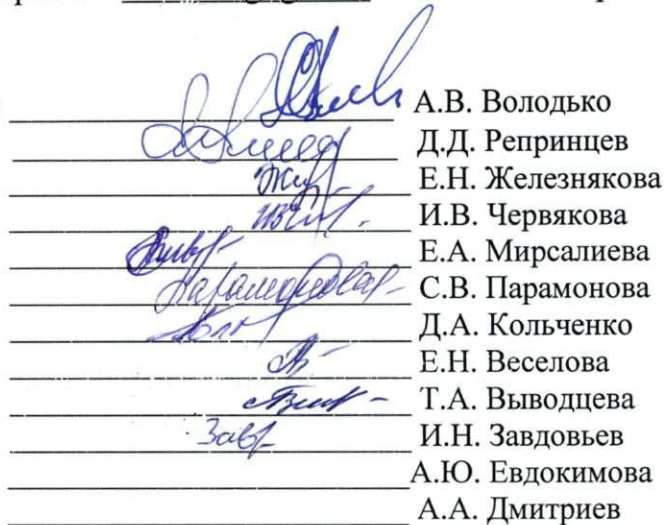 А.В. Володько
Д.Д. Репринцев
Е.Н. Железнякова
И.В. Червякова
Е.А. Мирсалиева
Парамонова С.В. Парамонова
Д.А. Кольченко
Е.Н. Веселова
Т.А. Выводцева
Завд И.Н. Завдовьев
А.Ю. Евдокимова
А.А. Дмитриев